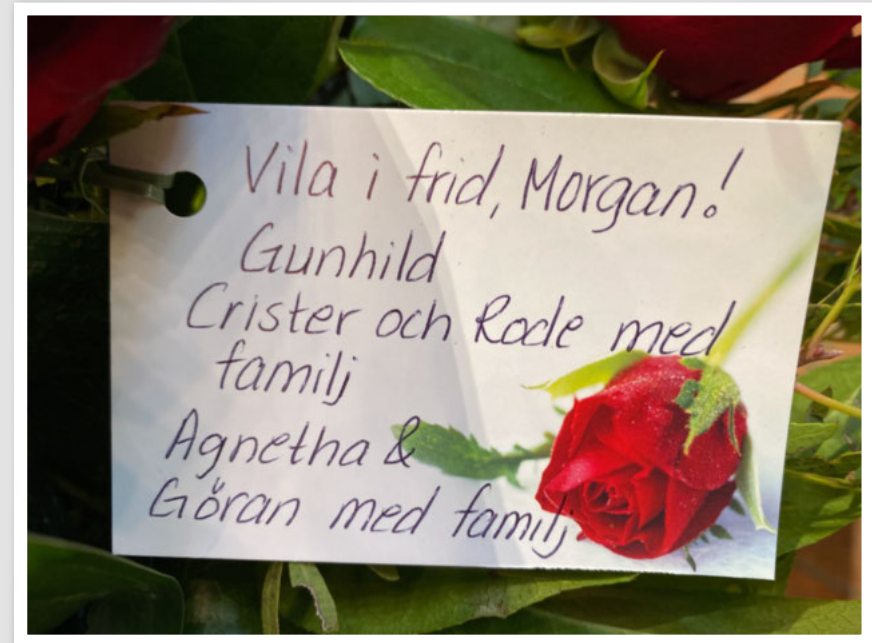 Vila i frid, Morgan!
Gunhild
Crister och Rode med
familj
Agnetha &
Göran med familj